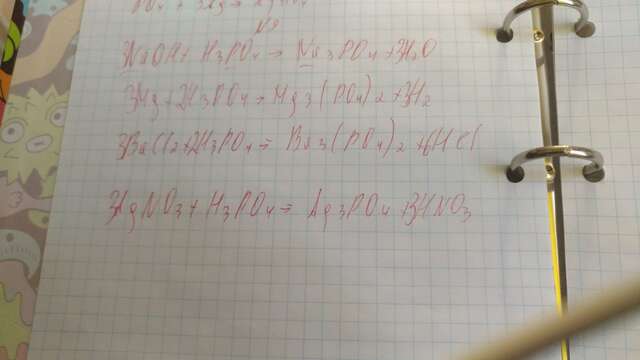 3NaOH + H3PO4 → Na3PO4 + 3H2O
3Mg + 2H3PO4 → Mg3(PO4)2 + 3H2
3BaCl2 + 2H3PO4 → Ba3(PO4)2 + 6HCl
3AgNO3 + H3PO4 → Ag3PO4 + 3HNO3